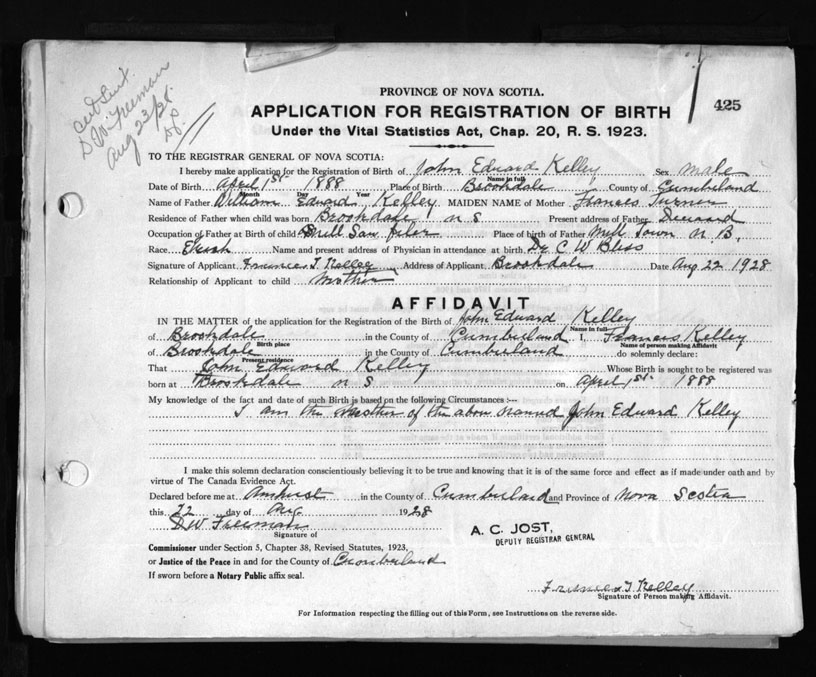 cert sent
D.W. Freeman
Aug 23/28
425
PROVINCE OF NOVA SCOTIA.
APPLICATION FOR REGISTRATION OF BIRTH
Under the Vital Statistics Act, Chap. 20, R. S. 1923.
TO THE REGISTRAR GENERAL OF NOVA SCOTIA:
I hereby make application for the Registration of Birth of John Edward Kelley Sex male
Name in full
Date of Birth April 1st 1888 Place of Birth Brookdale County of Cumberland
Month Day Year
Name of Father William Edward Kelley MAIDEN NAME of Mother Frances Turner
Residence of Father when child was born Brookdale N S Present address of Father Deceased
Occupation of Father at Birth of child Mill Saw filer Place of birth of Father Mill Town N. B.
Race Irish Name and present address of Physician in attendance at birth Dr C W Bliss
Signature of Applicant Frances T Kelley Address of Applicant Brookdale Date Aug 22 1928
Relationship of Applicant to child Mother
AFFIDAVIT
IN THE MATTER of the application for the Registration of the Birth of John Edward Kelley
Name in full
of Brookdale in the County of Cumberland I, Frances Kelley
Birth place Name of person making Affidavit
of Brookdale in the County of Cumberland do solemnly declare:
Present residence
That John Edward Kelley Whose Birth is sought to be registered was
born at Brookdale N S on April 1st 1888
My knowledge of the fact and date of such Birth is based on the following Circumstances :--
I am the Mother of the above named John Edward Kelley
I make this solemn declaration conscientiously believing it to be true and knowing that it is of the same force and effect as if made under oath and by
virtue of The Canada Evidence Act.
Declared before me at Amherst in the County of Cumberland and Province of Nova Scotia
this 22 day of Aug 1928
D W Freeman
Signature of
A. C. JOST,
DEPUTY REGISTRAR GENERAL
Commissioner under Section 5, Chapter 38, Revised Statutes, 1923.
or Justice of the Peace in and for the County of Cumberland
If sworn before a Notary Public affix seal.
Frances T Kelley
Signature of Person making Affidavit.
For Information respecting the filling out of this Form, see Instructions on the reverse side.